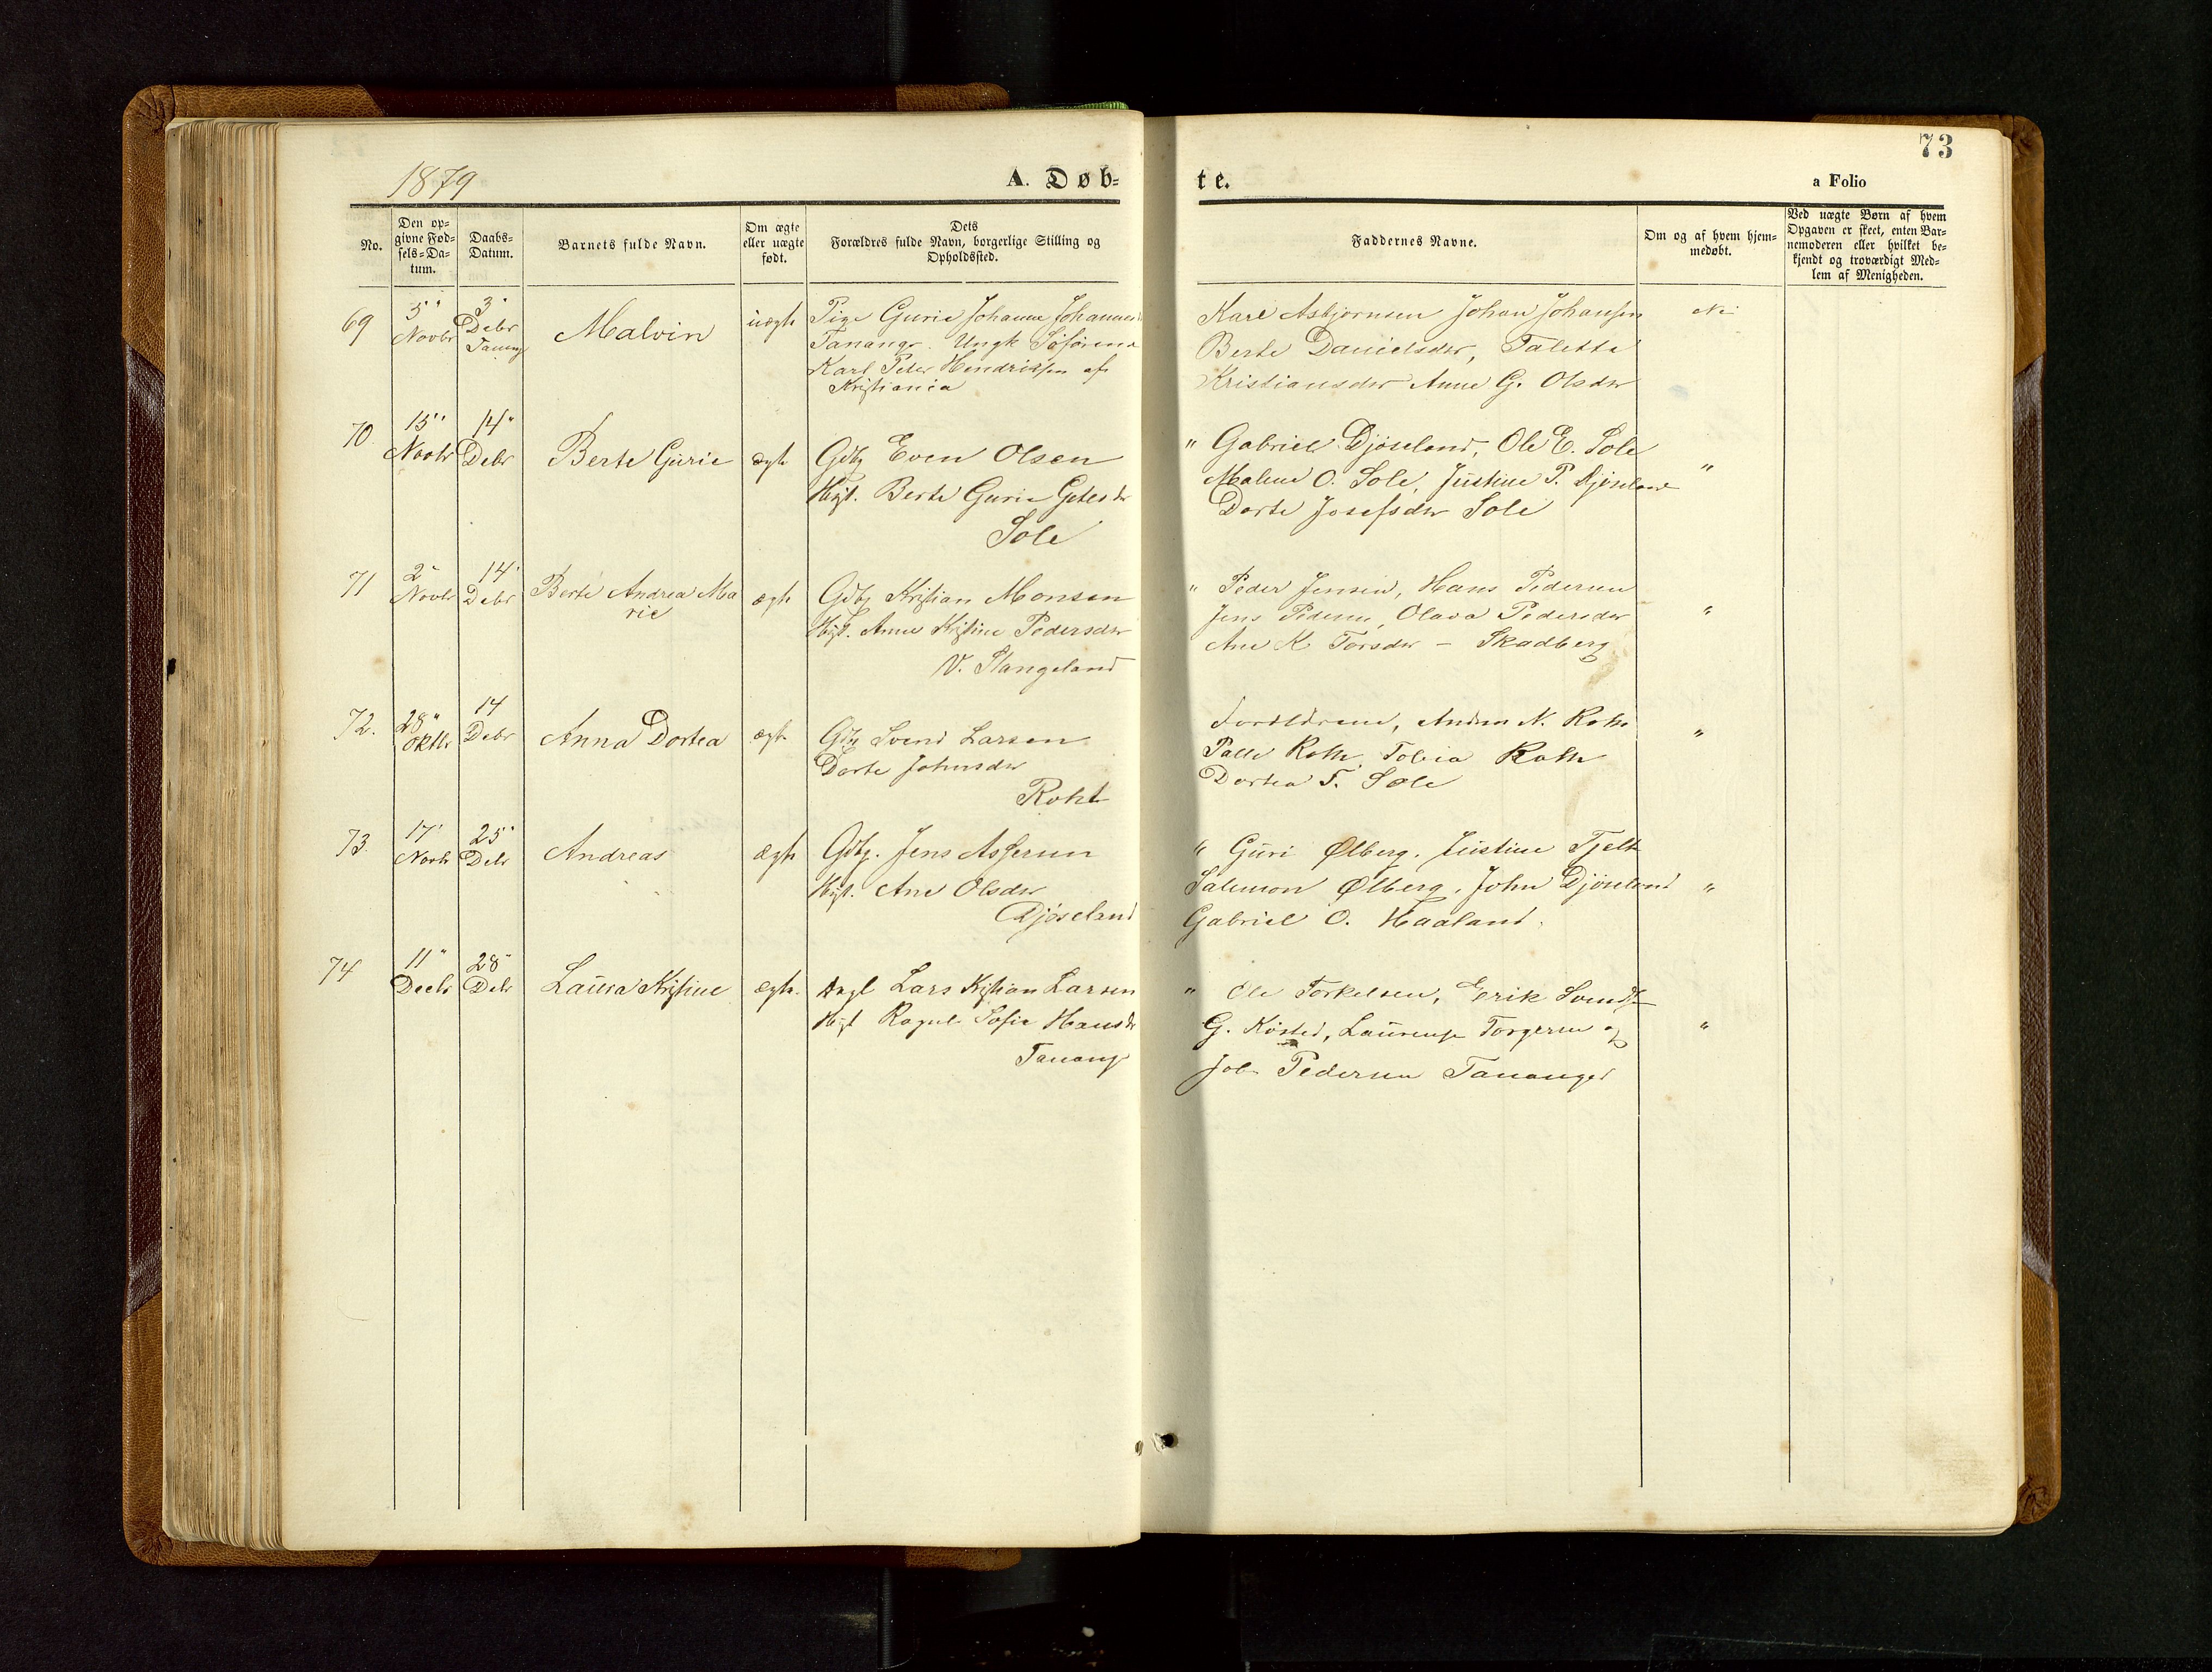 73
1879
A. Døb-
te.
a Folio
No.
Den op-
givne Fød-
sels-Da-
tum.
Daabs-
Datum.
Barnets fulde Navn.
Om ægte
eller uægte
født.
Dets
Forældres fulde Navn, borgerlige Stilling og
Opholdssted.
Faddernes Navne.
Om og af hvem hjem-
medøbt.
Ved uægte Børn af hvem
Opgaven er skeet, enten Bar-
nemoderen eller hvilket be-
kjendt og troværdigt Med-
lem af Menigheden.
69
5"
Novbr
3"
Debr
Malvin
uægte
Pige Gurie Johanne
Tananger. Ungk
Karl Peter Hendriksen af
Kristiania
Karl Asbjørnsen Johan Johansen
Berte Danielsdr, Taletta
Kristiansdr Anne G. Olsdr
70
15"
Novbr
14"
Debr
Berte Gurie
ægte
Gdbg Even Olsen
Hust. Berte Gurie
Sole
" Gabriel Djøseland, Ole E. Sole
Malene O. Sole, Justine P. Djøseland
Dorte Josefsdr Sole
"
71
2"
Novbr
14"
Debr
Berte Andrea Ma
rie
ægte
Gdbg Kristian Monsen
Hust. Anne Kristine Pedersdr
V. Stangeland
" Peder Jensen, Hans Pedersen
Jens Pedersen, Olava Pedersdr
Ane K. Torsdr – Skadberg
"
72.
28"
Oktbr
14
Debr
Anna Dortea
ægte
Gdbg Svend Larsen
Dorte Johnsdr
Rott
Forældrene, Andreas N. Rott
Palle Rott, Tobia Rott
Dortea T. Sole
"
73.
17"
Novbr
25"
Debr
Andreas
ægte
Gdbg. Jens Assersen
Hust. Ane Olsdr
Djøseland
" Guri Ølberg. Justine Tjelta
Salemon Ølberg, John Djøseland
Gabriel O. Haaland.
"
74
11"
Decbr
28"
Debr
Laura Kristine
ægte
Lars Kristian Larsen
Hust Ragnil Sofie Hansdr
Tananger
" Ole Torkelsen, Erik
G. Laurense Torgersen og
Job Pedersen Tananger
"